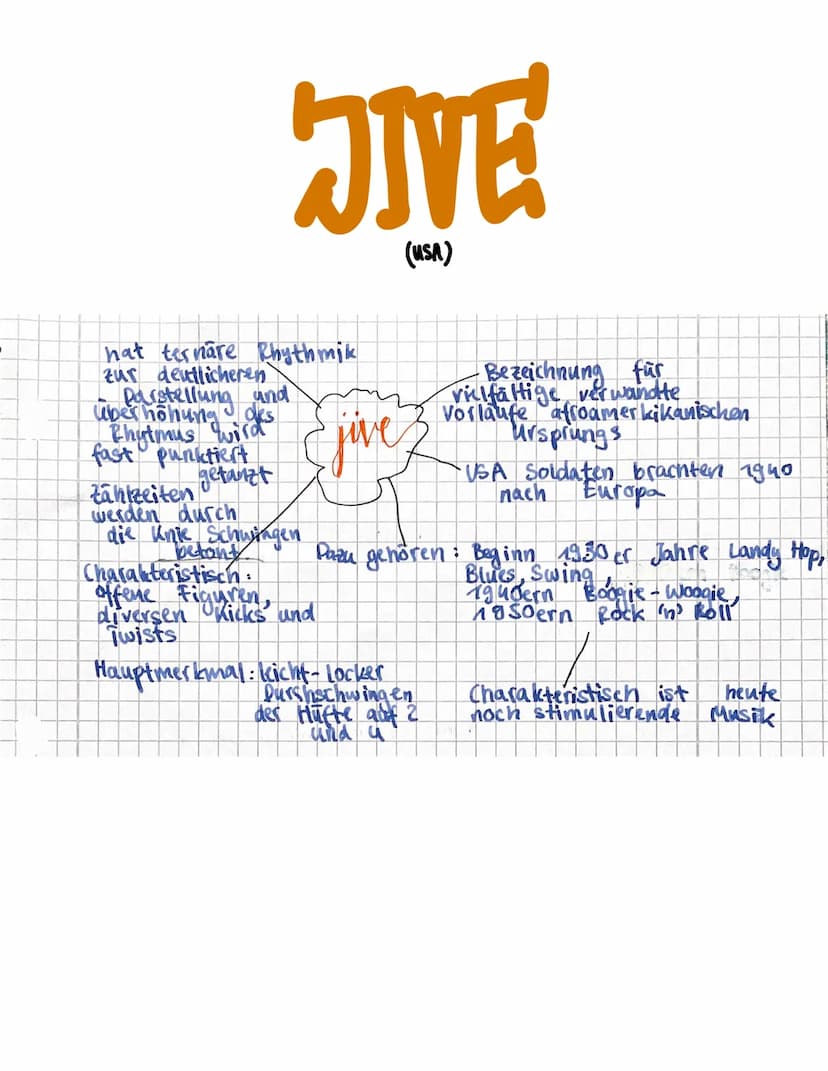 JIVE
(USA)
hat ternäre Rhythmik
zur deutlicheren
Darstellung und
überhöhung des
Rhytmus wird
fast punktiert
getanzt
Zählzeiten
werden durch
die Knie Schwingen
betont
Charakteristisch:
offene Figuren,
diversen Kicks und
Twists
Hauptmerkmal: leicht-locker
Durshschwingen
der Hüfte auf 2
und 4
jive
Bezeichnung für
vielfältige verwandte
Vorläufe afroamerkikanischen
Ursprungs
USA Soldaten brachten 1940
nach Europa
Dazu gehören: Beginn 1930er Jahre Landy Hop,
Blues, Swing,
1940ern Boogie-Woogie,
1850ern Rock 'n' Roll
Charakteristisch ist heute
noch stimulierende Musik